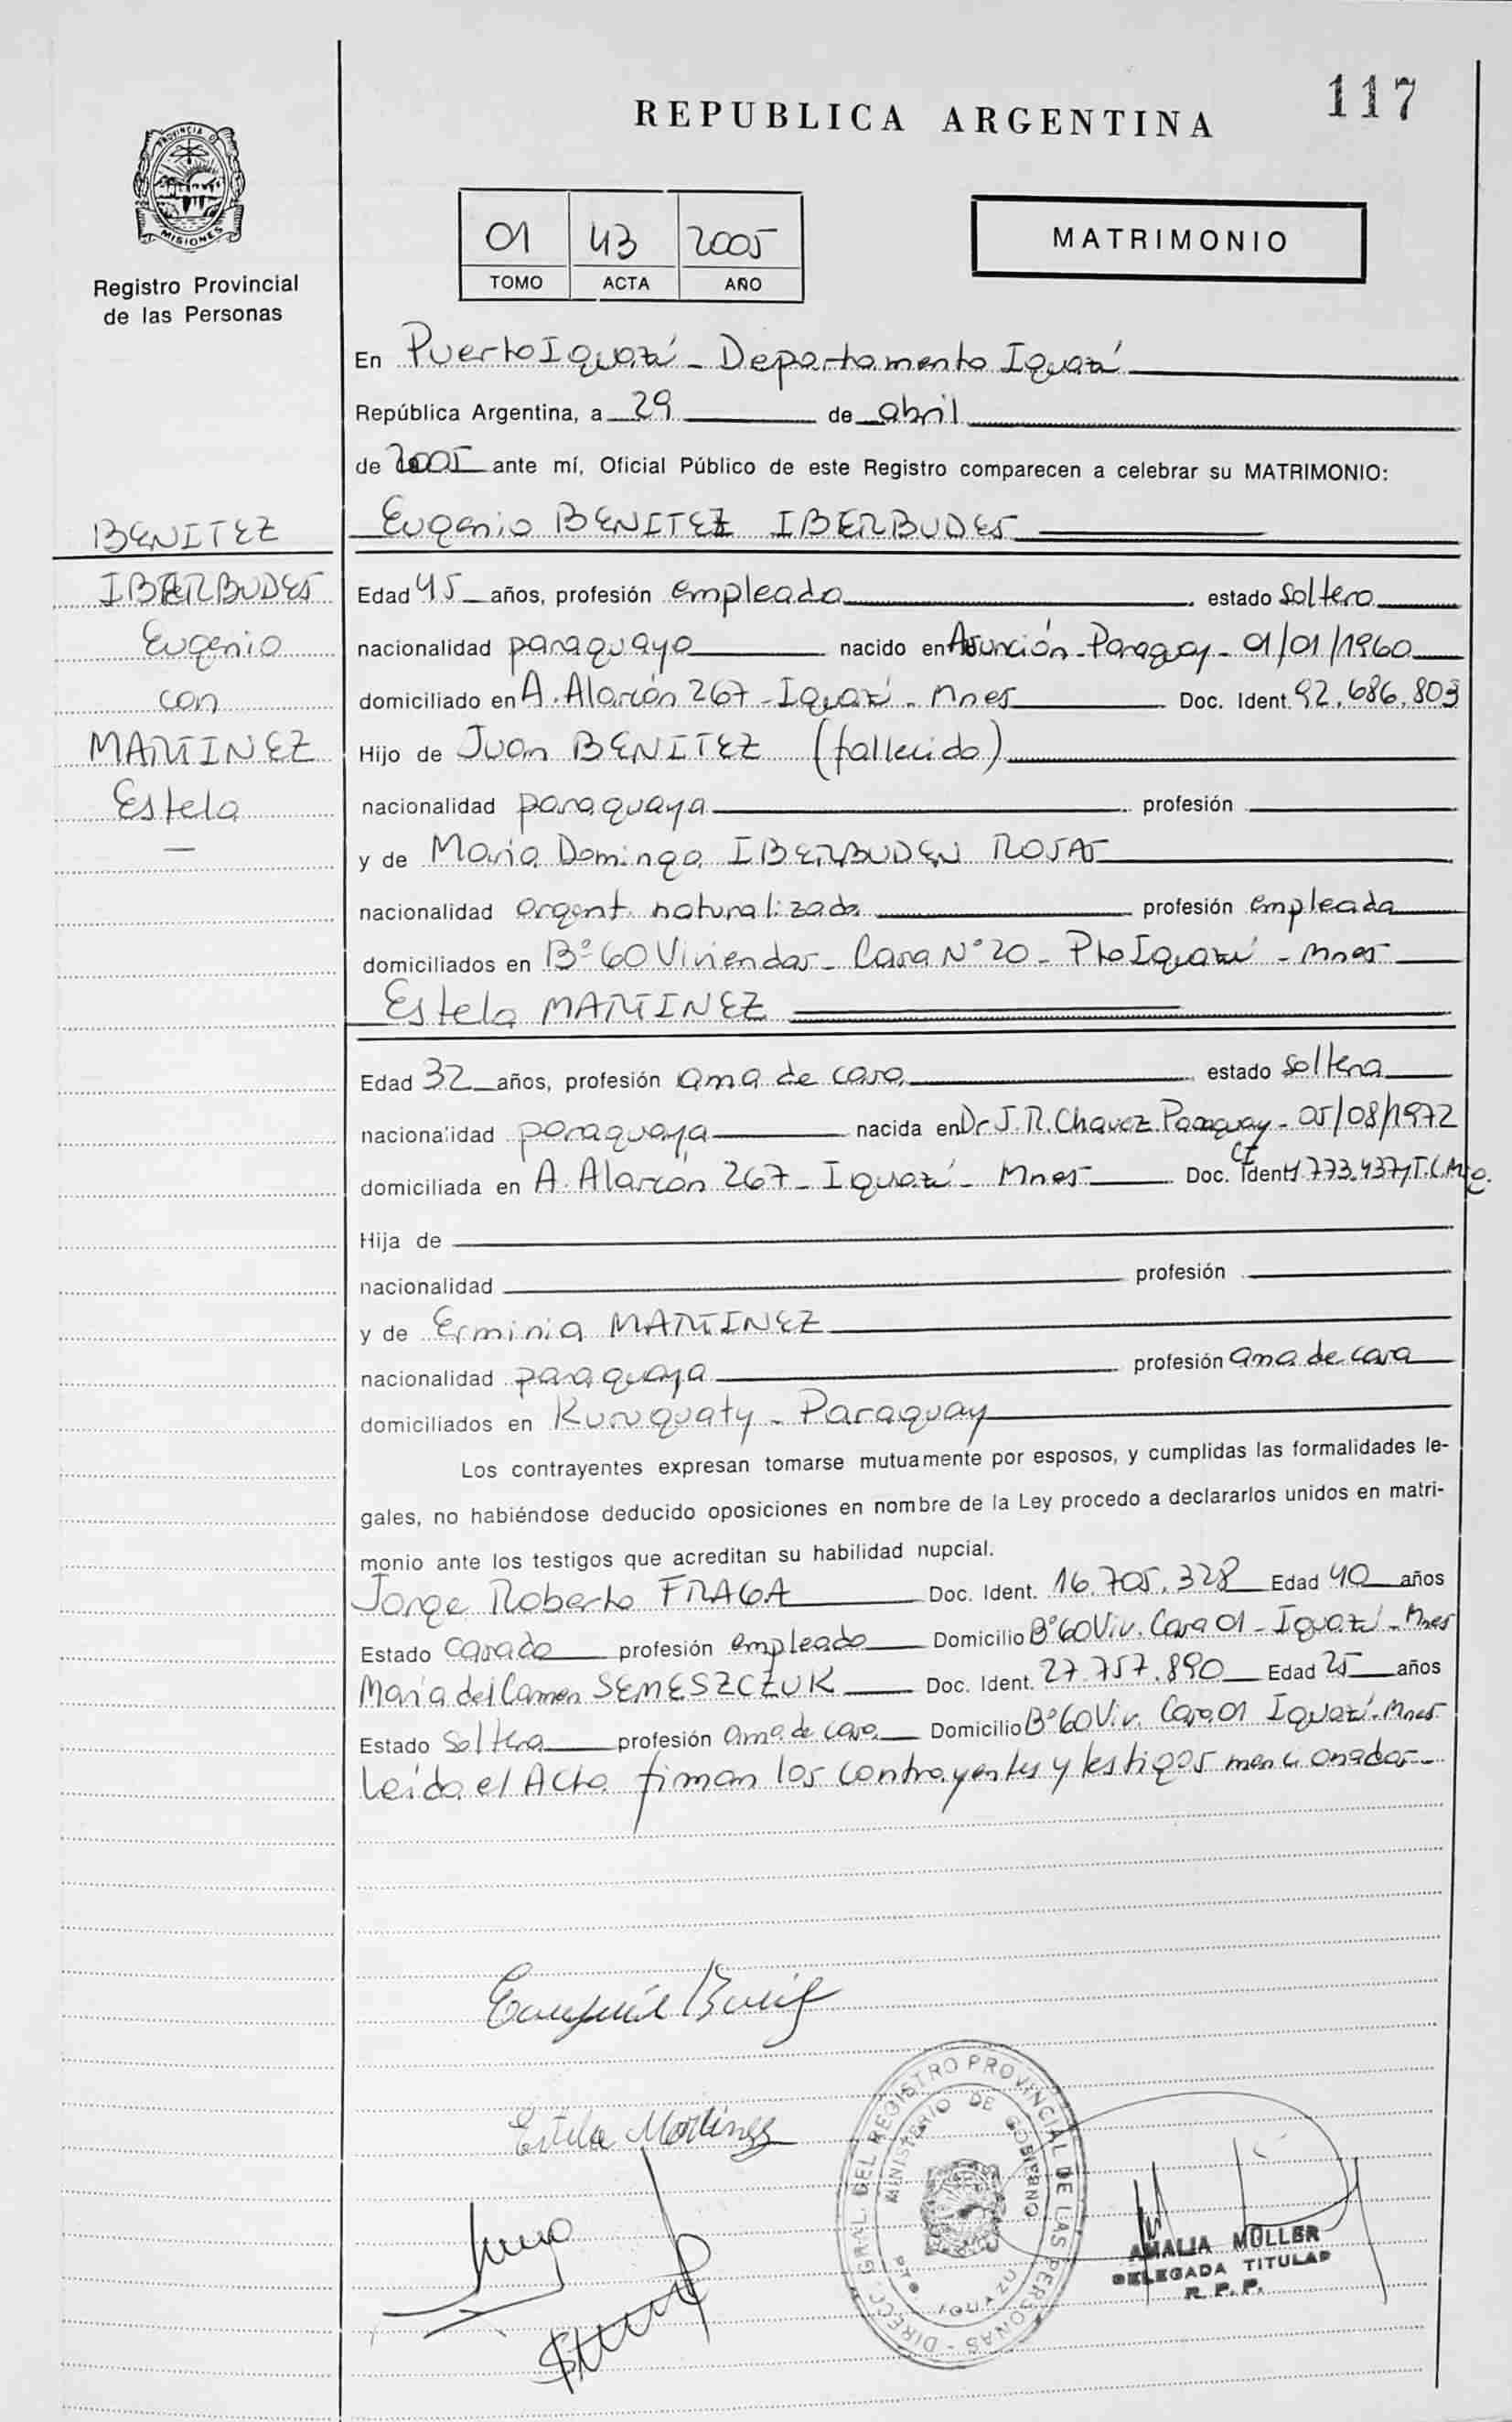 117
REPUBLICA ARGENTINA
PROVINCIA D
MISIONES
Registro Provincial
de las Personas
01 43 2005
TOMO ACTA AÑO
MATRIMONIO
En Puerto Iguazú - Departamento Iguazú
República Argentina, a 29 de abril
de 2005 ante mí, Oficial Público de este Registro comparecen a celebrar su MATRIMONIO:
BENITEZ
IBERBUDES
Eugenio
con
MARTINEZ
Estela
Eugenio BENITEZ IBERBUDES
Edad 45 años, profesión empleado estado soltero
nacionalidad paraguayo nacido en Asunción - Paraguay - 01/01/1960
domiciliado en A. Alarcón 267 - Iguazú - Mnes Doc. Ident. 92.686.803
Hijo de Juan BENITEZ (fallecido)
nacionalidad paraguaya profesión
y de María Dominga IBERBUDEN ROJAS
nacionalidad argent. naturalizada profesión empleada
domiciliados en Bº 60 Viviendas - Casa Nº 20 - Pto Iguazú - Mnes
Estela MARTINEZ
Edad 32 años, profesión ama de casa estado soltera
nacionalidad paraguaya nacida en Dr J. R. Chavez Paraguay - 05/08/1972
domiciliada en A. Alarcón 267 - Iguazú - Mnes Doc. Ident. CI 1.773.437
Hija de
nacionalidad profesión
y de Erminia MARTINEZ
nacionalidad paraguaya profesión ama de casa
domiciliados en Kuruguaty - Paraguay
Los contrayentes expresan tomarse mutuamente por esposos, y cumplidas las formalidades le-
gales, no habiéndose deducido oposiciones en nombre de la Ley procedo a declararlos unidos en matri-
monio ante los testigos que acreditan su habilidad nupcial.
Jorge Roberto FRAGA Doc. Ident. 16.705.328 Edad 40 años
Estado casado profesión empleado Domicilio Bº 60 Viv. Casa 01 - Iguazú - Mnes
María del Carmen SEMESZCZUK Doc. Ident. 27.757.890 Edad 25 años
Estado soltera profesión ama de casa Domicilio Bº 60 Viv. Casa 01 Iguazú - Mnes
Leída el Acta firman los contrayentes y testigos mencionados
Estela Martinez
DIRECC. GRAL. DEL REGISTRO PROVINCIAL DE LAS PERSONAS
MINISTERIO DE GOBIERNO
PTO IGUAZU
AMALIA MULLER
DELEGADA TITULAR
R. P. P.